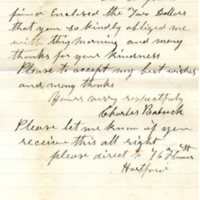 Enclosed the Two Dollars
that you so kindly obliged me
with this morning and many
thanks for your kindness
Please to accept my best wishes
and many thanks
Yours very respectfully
Charles Babcock
Please let me know if you
receive this all right
please direct to 76
Hartford